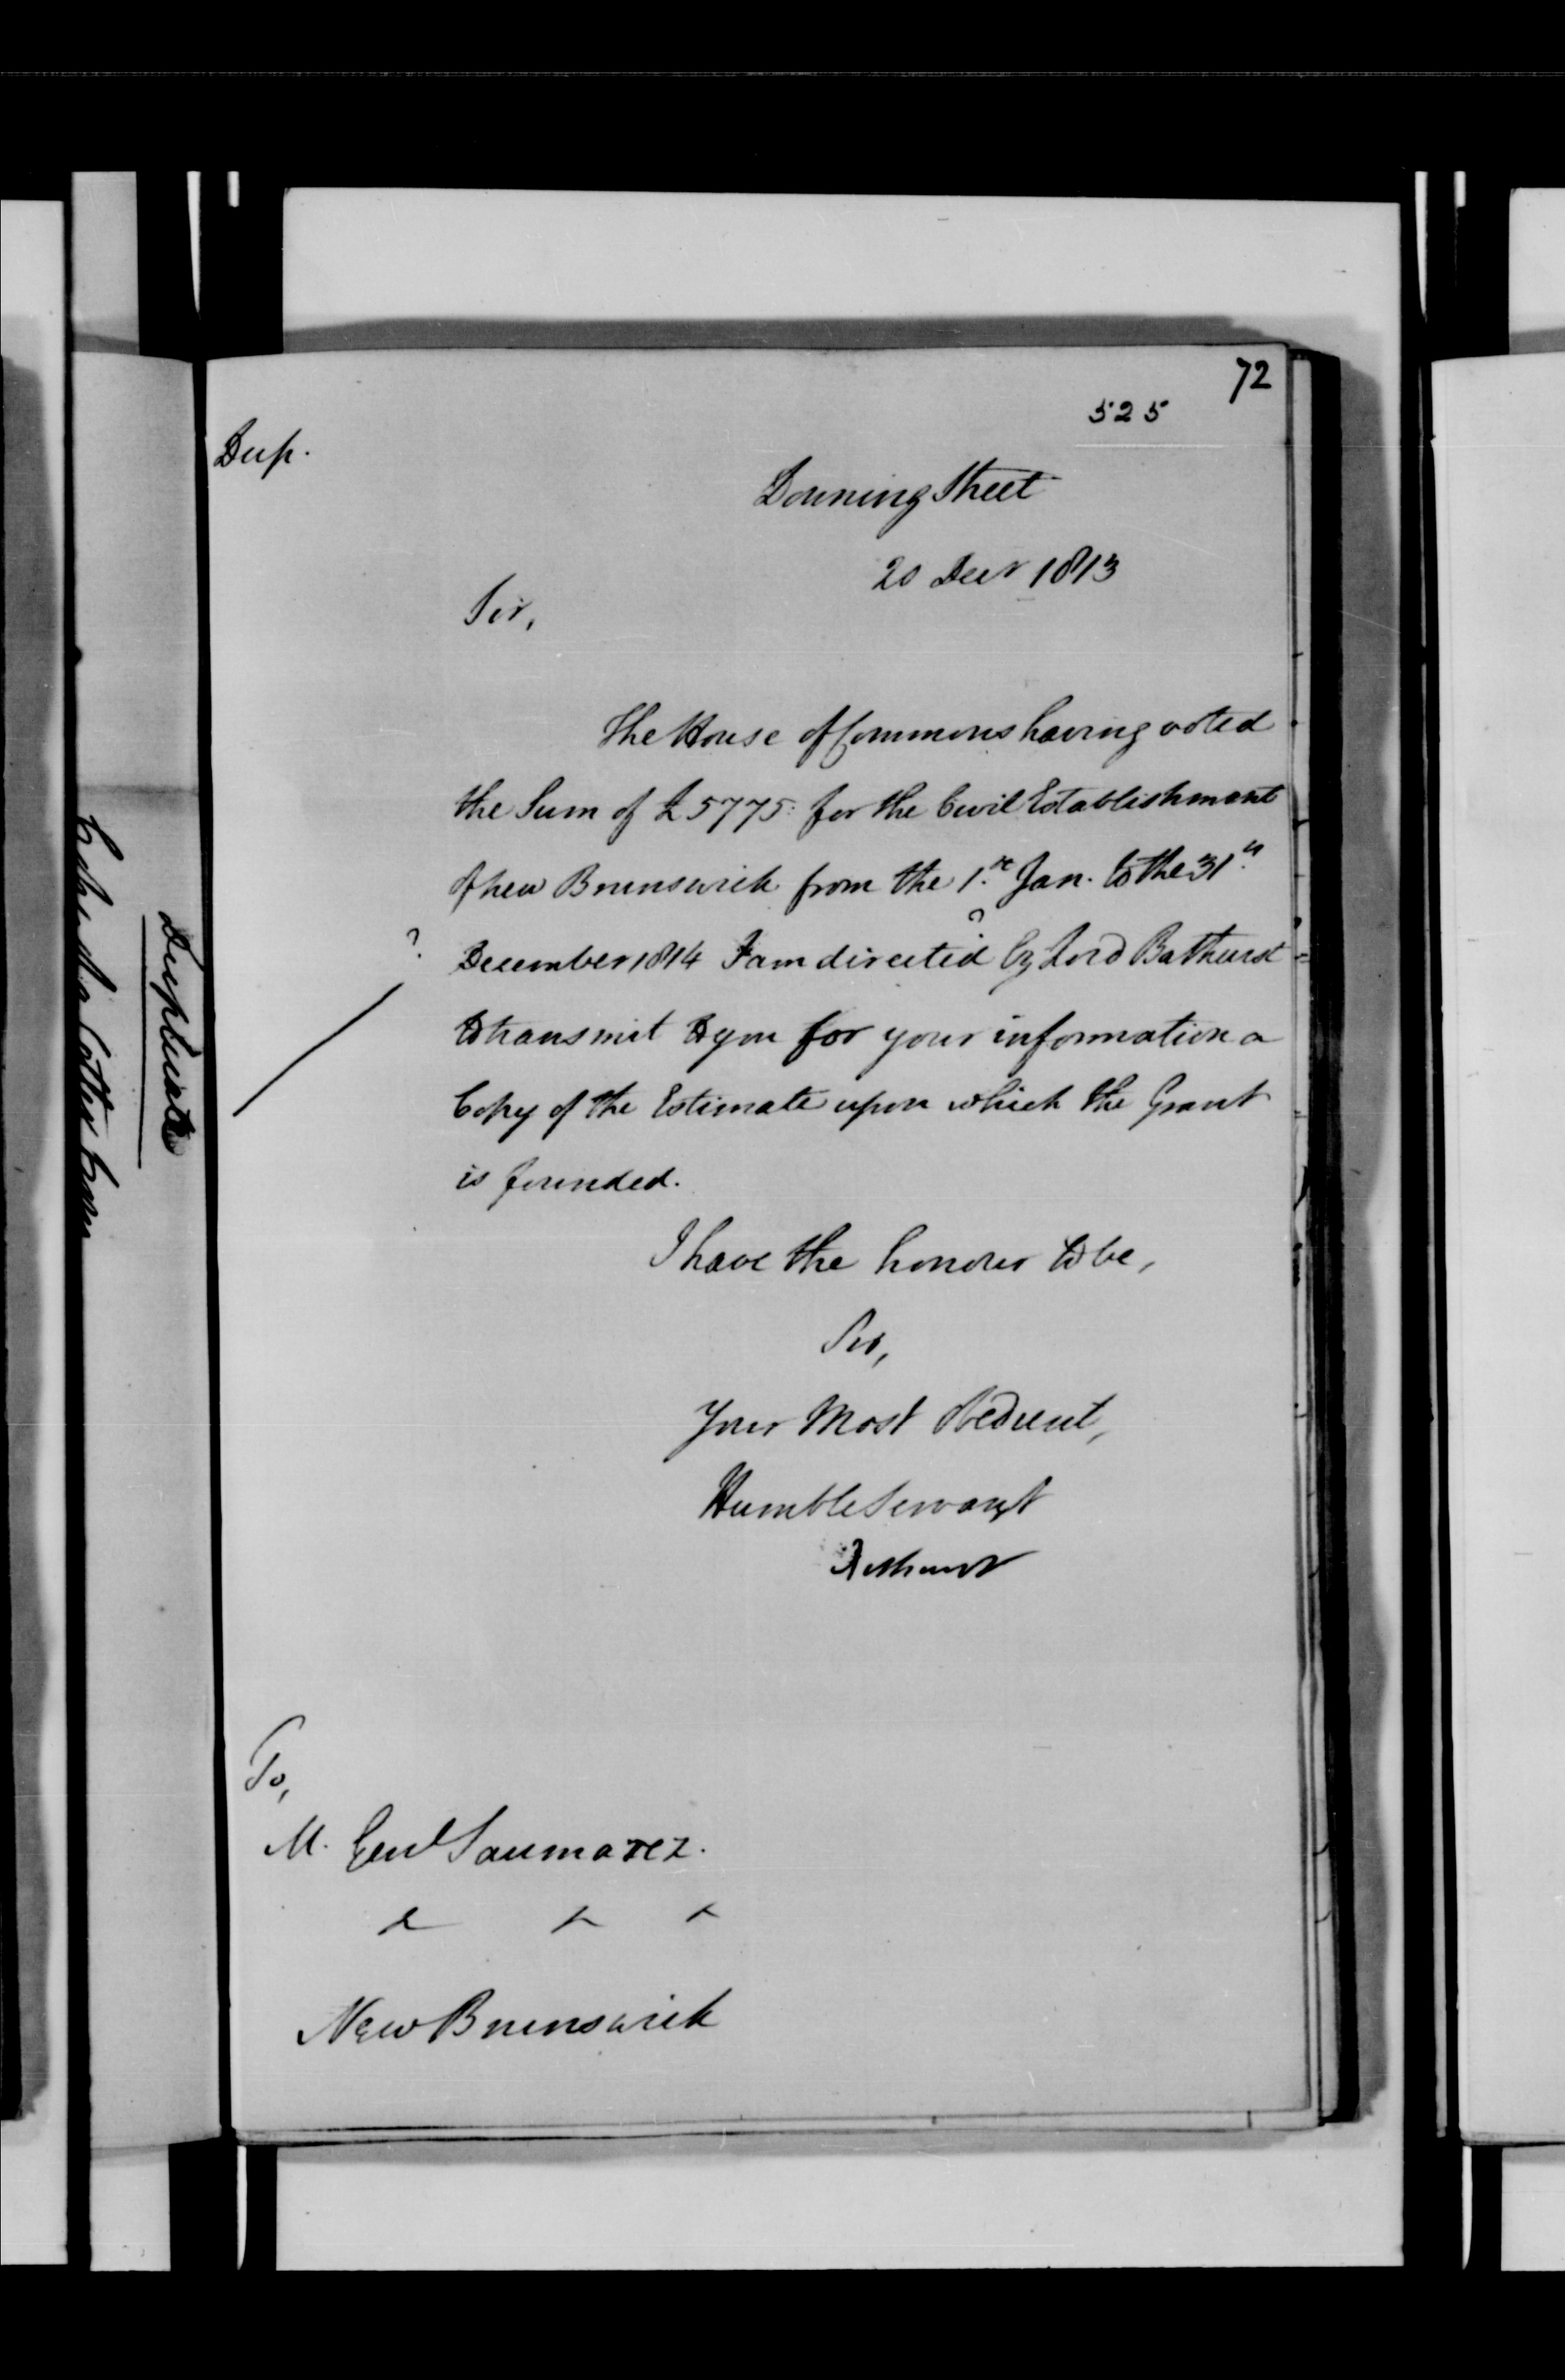 72
525
Dup.
Downing Street
20 Decr 1813
Sir,
The House of Commons having voted
the Sum of £5775: for the Civil Establishment
of new Brunswick from the 1st Jan. to the 31st
?
? December 1814 I am directed by Lord Bathurst
to transmit to you for your information a
Copy of the Estimate upon which the Grant
is founded.
I have the honour to be,
Sir,
Your Most Obedient,
Humble Servant
Bathurst
To,
M. Genl Saumarez.
New Brunswick
Duplicate